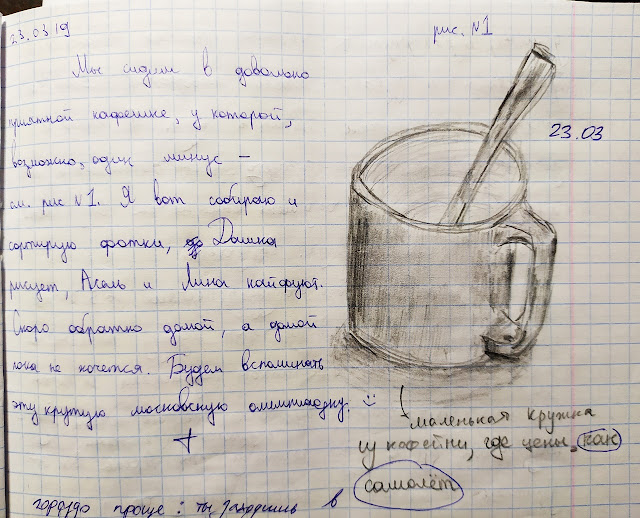 23.03 19
рис. №1
Мы сидим в довольно
приятной кафешке, у которой,
возможно, один минус –
см. рис №1. Я вот собираю и
сортирую фотки, Дашка
рисует, Асель и Лина кайфуют.
Скоро обратно домой, а домой
пока не хочется. Будем вспоминать
эту крутую московскую олимпиадку. :)
23.03
маленькая кружка
из кофейни, где цены, как
самолёт
гораздо проще: ты заходишь в